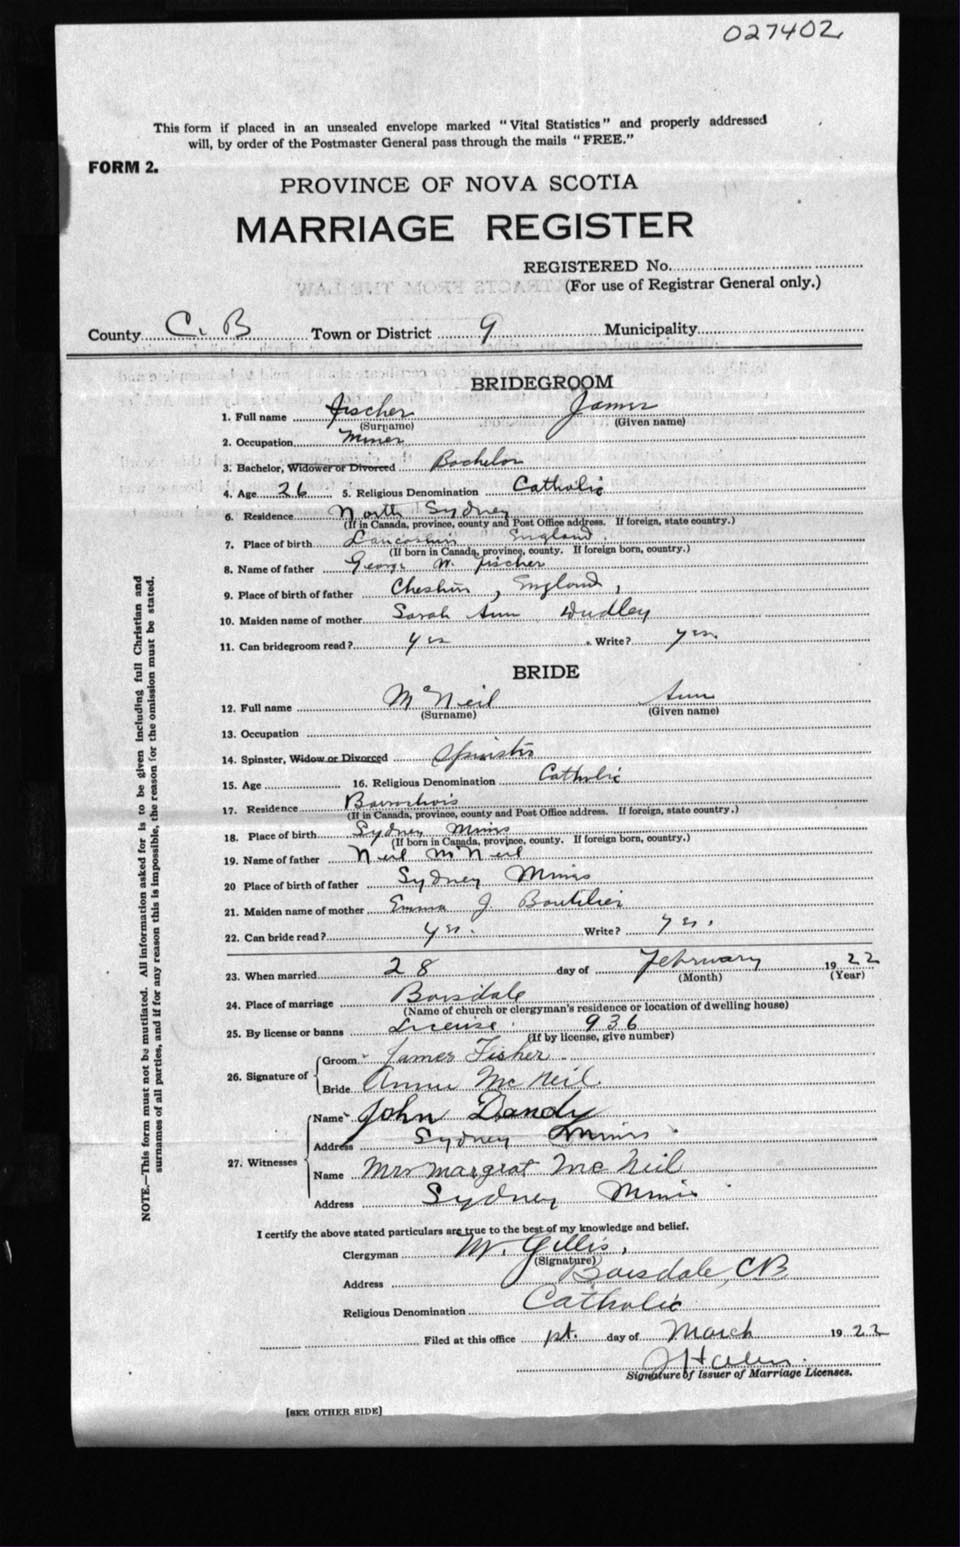 027402
This form if placed in an unsealed envelope marked "Vital Statistics" and properly addressed
will, by order of the Postmaster General pass through the mails "FREE."
FORM 2.
PROVINCE OF NOVA SCOTIA
MARRIAGE REGISTER
REGISTERED No.
(For use of Registrar General only.)
County C. B Town or District 9 Municipality
BRIDEGROOM
1. Full name Fischer James
(Surname) (Given name)
2. Occupation Miner
3. Bachelor, Widower or Divorced Bachelor
4. Age 26 5. Religious Denomination Catholic
6. Residence North Sydney
(If in Canada, province, county and Post Office address. If foreign, state country.)
7. Place of birth Lancashire England
(If born in Canada, province, county. If foreign born, country.)
8. Name of father George W. Fischer
9. Place of birth of father Cheshire, England,
10. Maiden name of mother Sarah Ann Dudley
11. Can bridegroom read? Yes Write? Yes
BRIDE
12. Full name McNeil Ann
(Surname) (Given name)
13. Occupation
14. Spinster, Widow or Divorced Spinster
15. Age 16. Religious Denomination Catholic
17. Residence
(If in Canada, province, county and Post Office address. If foreign, state country.)
18. Place of birth Sydney Mines
(If born in Canada, province, county. If foreign born, country.)
19. Name of father Neil McNeil
20 Place of birth of father Sydney Mines
21. Maiden name of mother Emma J. Boutilier
22. Can bride read? Yes. Write? Yes.
23. When married 28 day of February 1922
(Month) (Year)
24. Place of marriage Boisdale
(Name of church or clergyman's residence or location of dwelling house)
25. By license or banns License. 936
(If by license, give number)
26. Signature of
Groom James Fisher
Bride Annie McNeil.
27. Witnesses
Name John Dandy
Address Sydney Mines
Name Mrs Margrat McNeil
Address Sydney Mines
I certify the above stated particulars are true to the best of my knowledge and belief.
Clergyman M. Gillis,
(Signature)
Address Boisdale, CB
Religious Denomination Catholic
Filed at this office 1st. day of March 1922
Signature of Issuer of Marriage Licenses.
[SEE OTHER SIDE]
NOTE.—This form must not be mutilated. All information asked for is to be given including full Christian and
surnames of all parties, and if for any reason this is impossible, the reason for the omission must be stated.